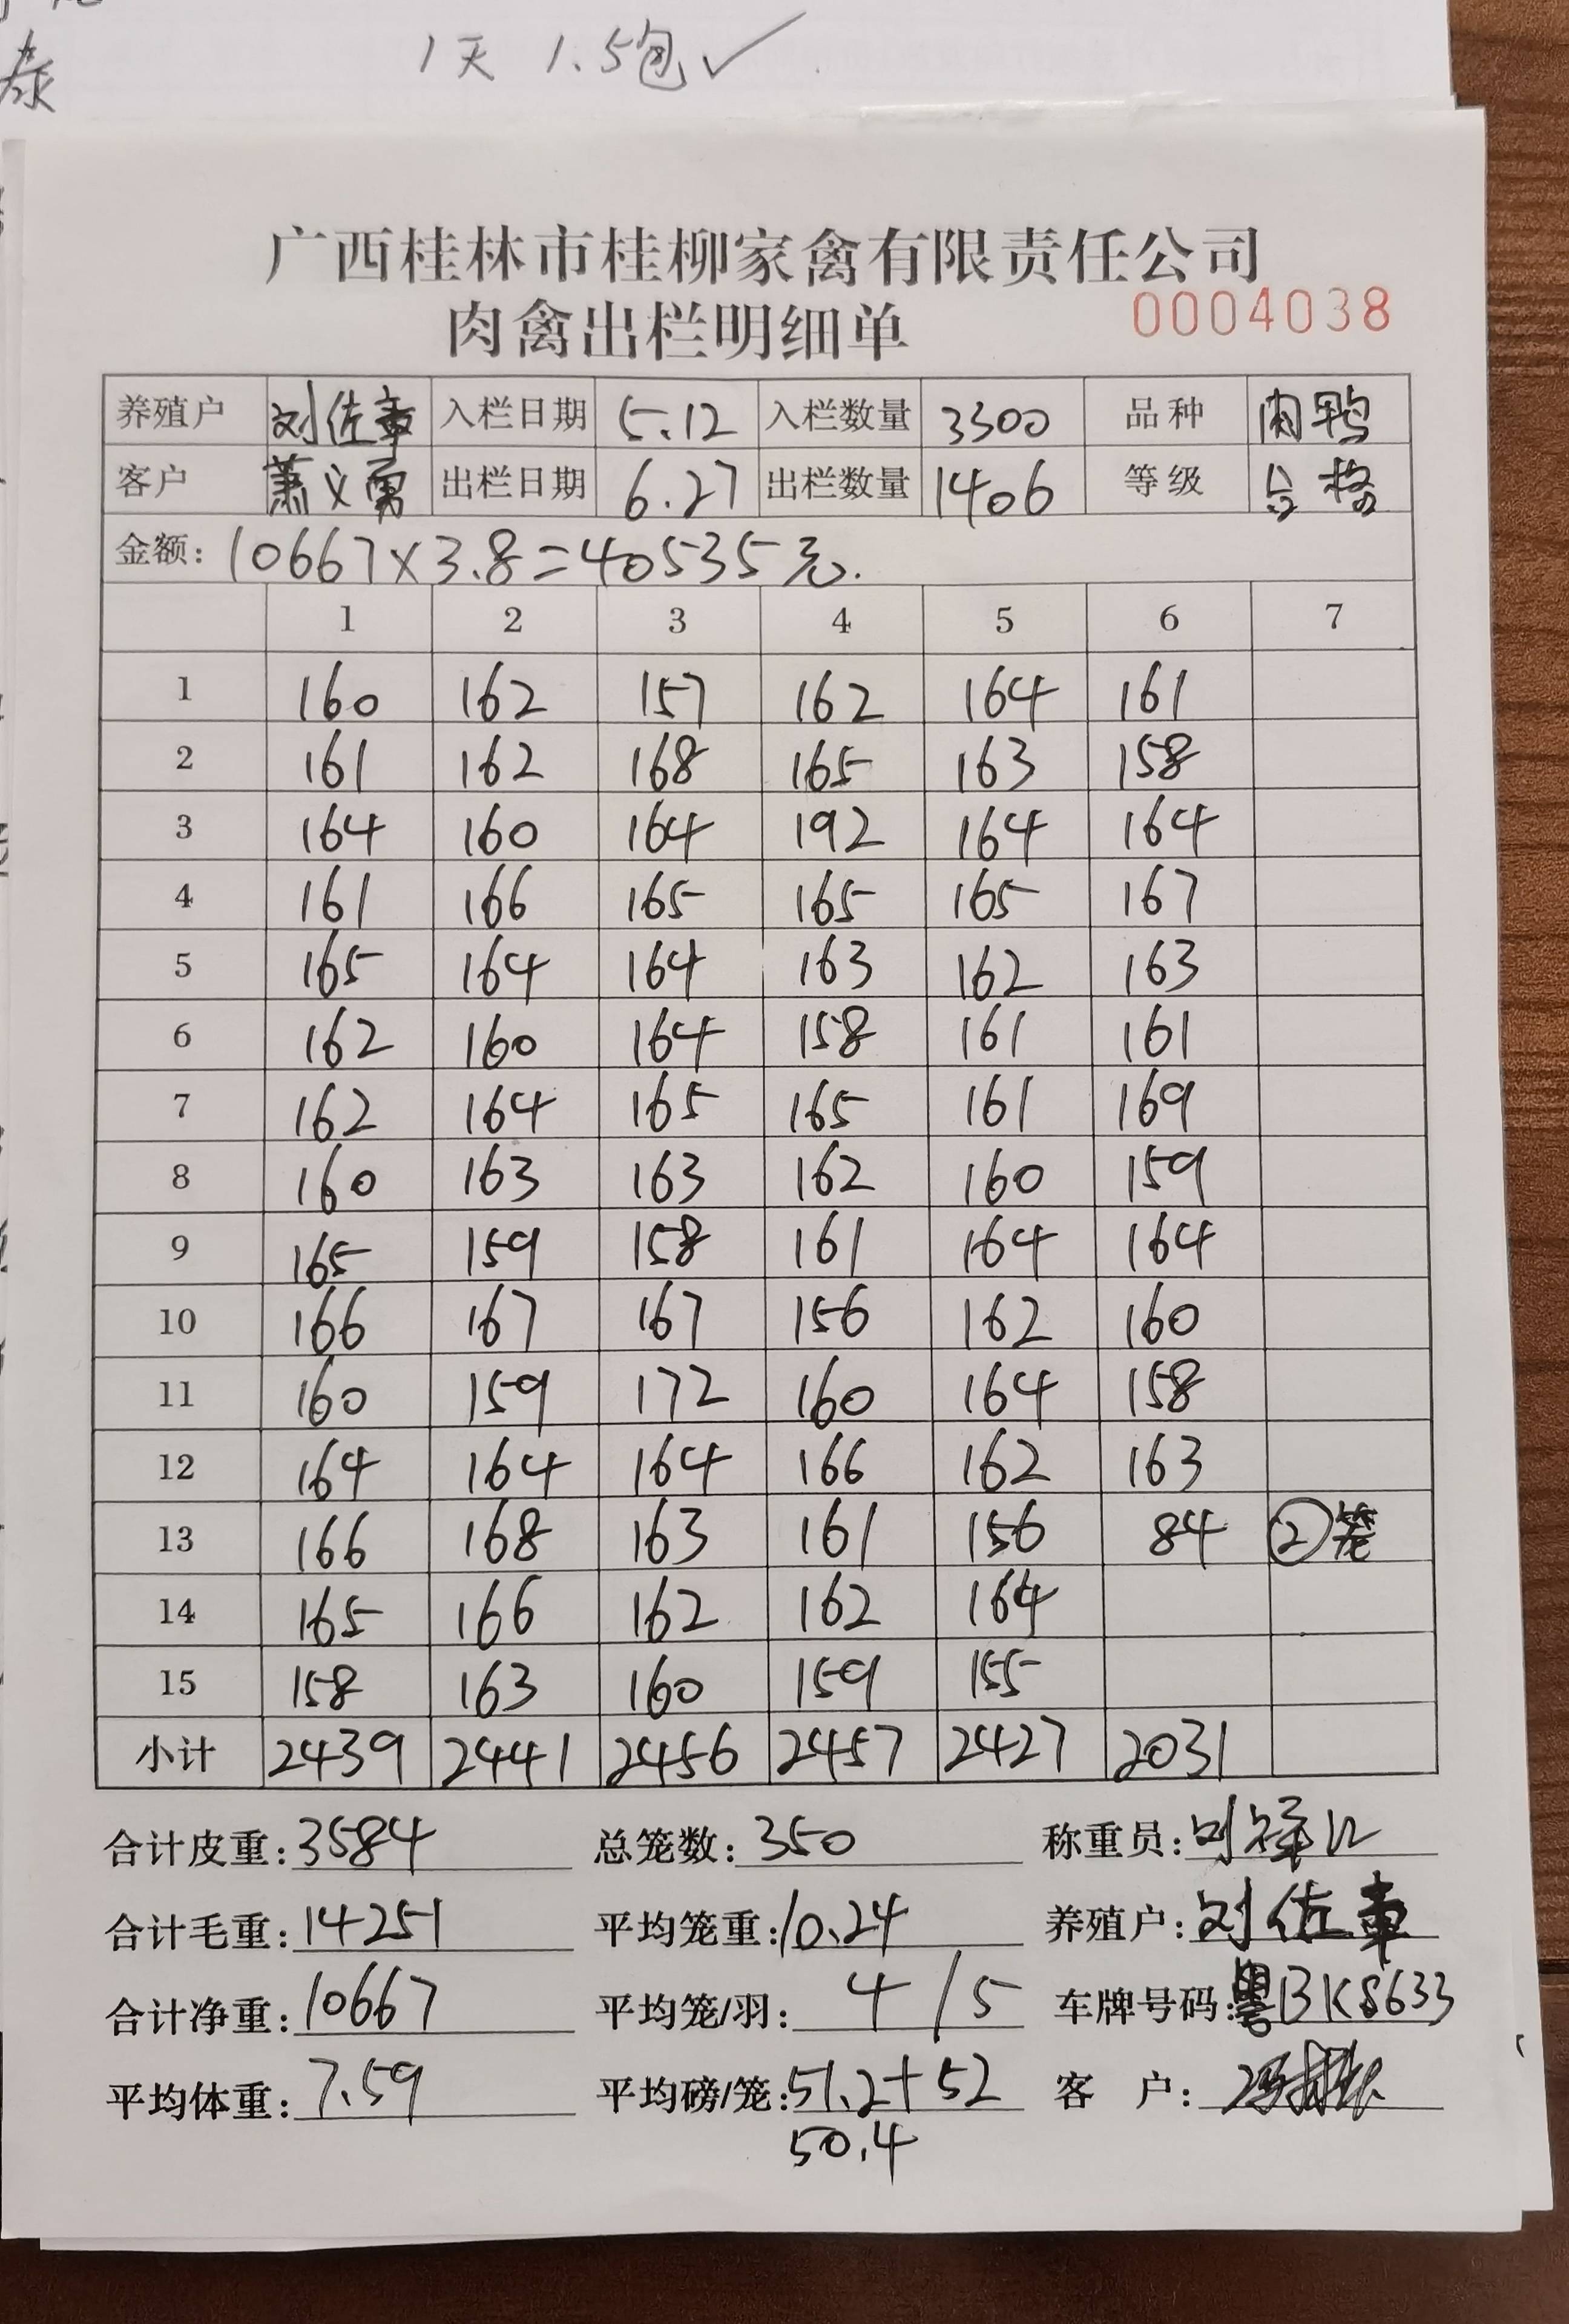 1天 1.5包✓
泰
广西桂林市桂柳家禽有限责任公司
肉禽出栏明细单 0004038
养殖户 刘佐章 入栏日期 5.12 入栏数量 3300 品种 肉鸭
客户 萧义勇 出栏日期 6.27 出栏数量 1406 等级 合格
金额：10667×3.8=40535元.
1 2 3 4 5 6 7
1 160 162 157 162 164 161
2 161 162 168 165 163 158
3 164 160 164 192 164 164
4 161 166 165 165 165 167
5 165 164 164 163 162 163
6 162 160 164 158 161 161
7 162 164 165 165 161 169
8 160 163 163 162 160 159
9 165 159 158 161 164 164
10 166 167 167 156 162 160
11 160 159 172 160 164 158
12 164 164 164 166 162 163
13 166 168 163 161 156 84 ②笼
14 165 166 162 162 164
15 158 163 160 159 155
小计 2439 2441 2456 2457 2427 2031
合计皮重：3584 总笼数：350 称重员：
合计毛重：14251 平均笼重：10.24 养殖户：刘佐章
合计净重：10667 平均笼/羽：4/5 车牌号码：粤BK8633
平均体重：7.59 平均磅/笼：51.2+52 客 户：
50.4